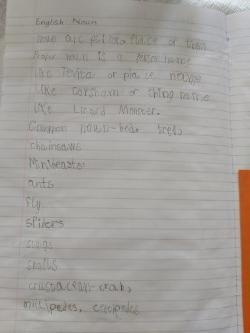 English Noun
noun are person, place or thing
Proper noun is a person name
like or place name
like corsham or thing name
like Lizard Monster.
Common noun-bear tree,
chainsaws
Minibeasts
ants
fly
spiders
slugs
snails
crustacean-crab,
millipedes, centipedes